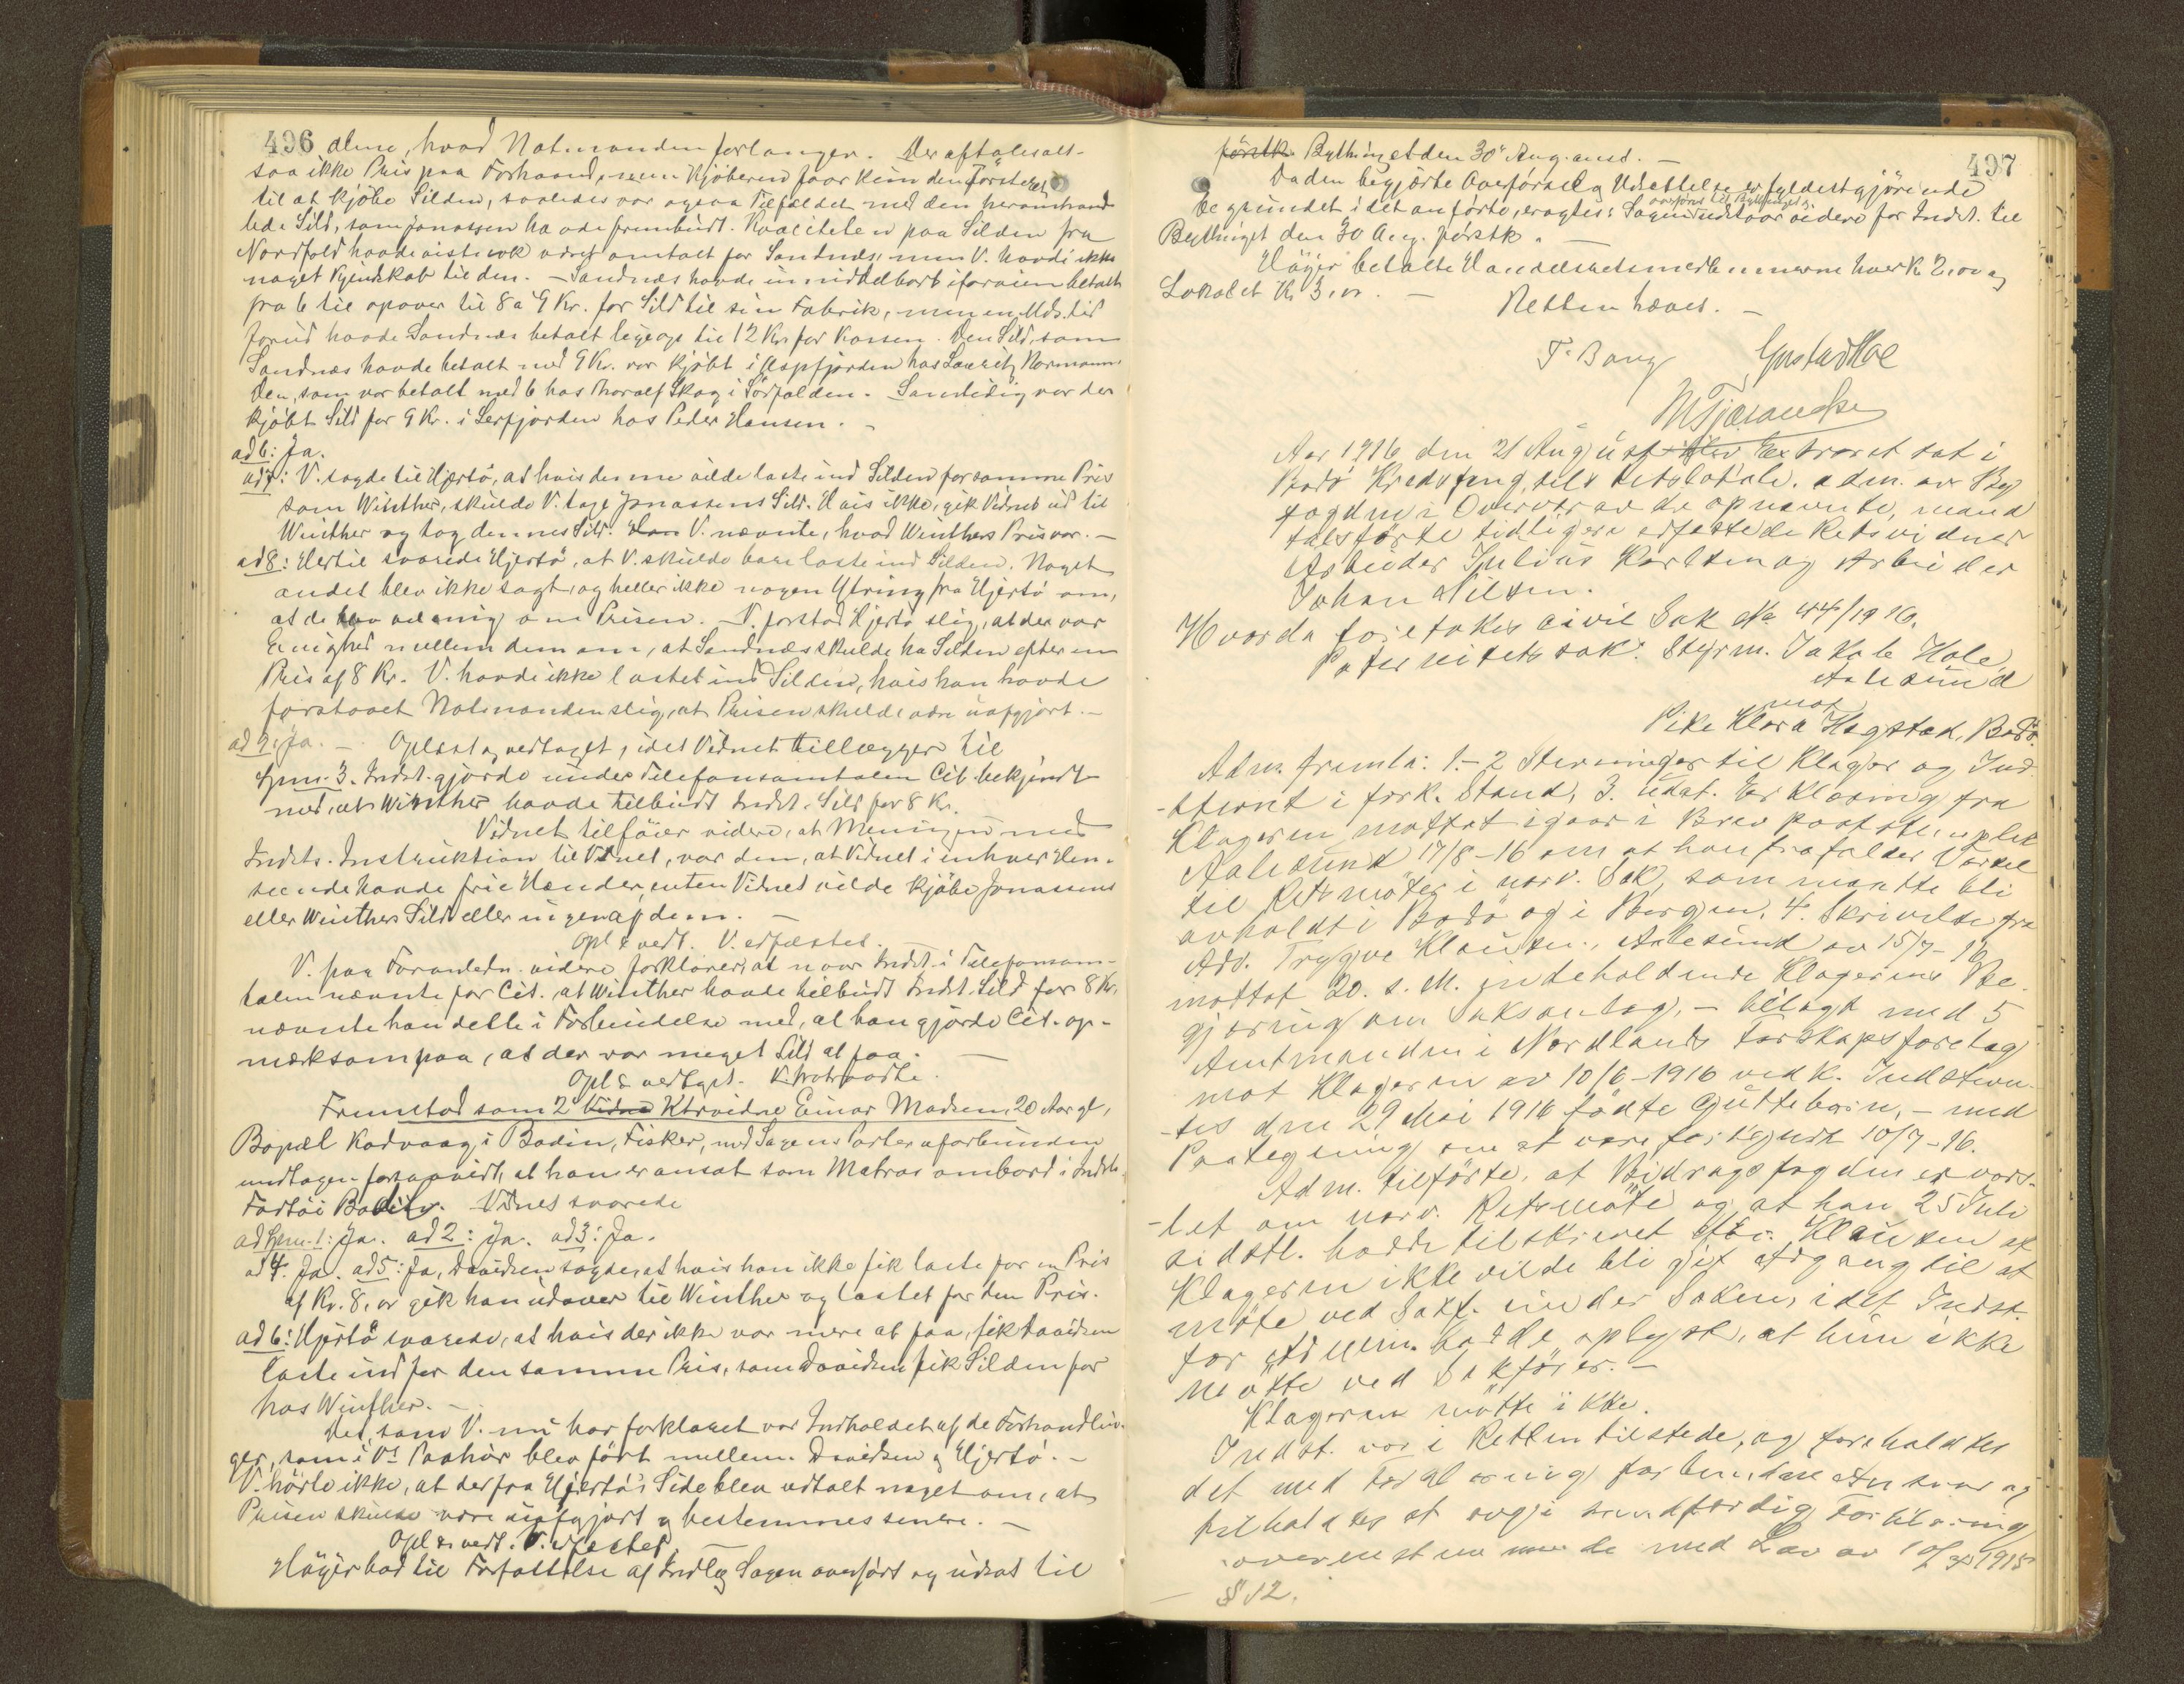 496 alene, hvad Notmanden forlanger. Der aftales alt-
saa ikke Pris paa Forhaand, men Kjøberen faar kun den Førsteret
til at kjøbe Silden, saaledes var ogsaa Tilfældet med den heromhand-
lede Sild, som Jonassen havde frembudt. Kvaliteten paa Silden fra
Nordfold havde vistnok været omtalt for Sandnæs, men V. havde ikke
noget Kjendskab til den. - Sandnæs havde umiddelbart iforveien betalt
fra 6 til opover til 8 a 9 Kr. for Sild til sin Fabrik, men en Mds. tid
forud havde Sandnæs betalt ligeop til 12 Kr. for Kassen. Den Sild, som
Sandnæs havde betalt med 9 Kr. var kjøbt i Aspfjorden hos Lauritz Normann.
Den, som var betalt med 6 hos Thoralf Skag i Sørfolden. Samtidig var der
kjøbt Sild for 9 Kr. i Lerfjorden hos Peder Hansen. -
ad 6: Ja.
ad 7: V. sagde til Hjertø, at hvis denne vilde laste ind Silden for samme Pris
som Winther, skulde V. tage Jonassens Sild. Hvis ikke, gik Vidnet ud til
Winther og tog dennes Sild. Han V. nævnte, hvad Winthers Pris var. -
ad 8: Hertil svarede Hjertø, at V. skulde bare laste ind Silden. Noget
andet blev ikke sagt, og heller ikke nogen Ytring fra Hjertø om,
at de blev uenig om Prisen. V. forstod Hjertø slig, at der var
Enighed mellem dem om, at Sandnæs skulde ha Silden efter en
Pris af 8 Kr. V. havde ikke lastet ind Silden, hvis han havde
forstaaet Notmanden slig, at Prisen skulde være uafgjort. -
ad 9: Ja. - Oplæst og vedtaget, idet Vidnet tillægger til
Spm. 3. Indst. gjorde under Telefonsamtalen Cit. bekjendt
med, at Winther havde tilbudt Indst. Sild for 8 Kr.
Vidnet tilføier videre, at Meningen med
Indsts. Instruktion til Vidnet, var den, at Vidnet i enhver Hen-
seende havde frie Hænder, enten Vidnet vilde kjøbe Jonassens
eller Winthers Sild eller ingen af dem. -
Opl & vedt. V. edfæstet. -
V. paa Foranledn. videre forklarer, at naar Indst. i Telefonsam-
talen nævnte for Cit. at Winther havde tilbudt Indst. Sild for 8 Kr.
nævnte han dette i Forbindelse med, at han gjorde Cit. op-
mærksom paa, at der var meget Sild at faa. -
Opl & vedtget.
Fremstod som 2 Vidne Ktrvidne Einar Madsen, 20 Aar gl,
Bopæl Kodvaag i Bodin, Fisker, med Sagens Parter uforbunden
undtagen forsaavidt, at han er ansat som Matros ombord i Indsts
Fartøi Vidnet svarede
ad Spm. 1: Ja. ad 2: Ja. ad 3: Ja.
ad 4. Ja. ad 5: Ja, Davidsen sagde, at hvis han ikke fik laste for en Pris
af Kr. 8,oo gik han udover til Winther og lastet for den Pris.
ad 6: Hjertø svarede, at hvis der ikke var mere at faa, fik Davidsen
laste ind for den samme Pris, som Davidsen fik Silden for
hos Winther. -
Det, som V. nu har forklaret var Indholdet af de Forhandlin-
ger, som i Vs Paahør blev ført mellem Davidsen og Hjertø. -
V. hørte ikke, at der fra Hjertø's Side blev udtalt noget om, at
Prisen skulde være uafgjort & bestemmes senere. -
Opl & vedt. V. edfæstet
Høyer bad til Forfattelse af Indlæg Sagen overført og udsat til
497
førstk. Bythinget den 30' Aug. anst. -
Da den begjærte Overførsel og Udsættelse er fyldestgjørende
begrundet i det anførte, eragtes: Sagen overføres til Bythinget &
udstaar videre for Indst. til
Bythinget den 30 Aug. førstk. -
Høyer betalte Handelsretsmedlemmerne hver K 2,oo og
Lokalet K 3,oo. -
Retten hævet. -
F. Bang Gustav Moe
Aar 1916 den 21 August blev Extraret sat i
Bodø Kredsfeng. sels retslokale. adm. av By-
fogden i Overvær av de opnævnte, mand-
talsførte tidligere edfæstede Retsvidner
Arbeider Julius Karlsen og Arbeider
Johan Nilsen.
Hvorda foretokes Civil Sak No 44/1916.
Paternitetssak: Styrm. Jakob Hole,
Aalesund
mot
Pike Klara Hagstad, Bodø.
Adm. fremla: 1.-2 Stevninger til Klager og Ind-
stevnt i fork. Stand, 3. udat. Erklæring fra
Klageren mottat igaar i Brev poststemplet
Aalesund 17/8-16 om at han frafalder Varsel
til Retsmøter i nærv. Sak, som maatte bli
avholdt i Bodø og i Bergen, 4. Skrivelse fra
Adv. Trygve Klausen, Aalesund av 15/7-16
mottat 20. s. M. indeholdende Klagerens Be-
gjæring om Saksanlæg, - bilagt med 5
Amtmanden i Nordlands Farskapsforelæg
mot Klageren av 10/6-1916 vedk. Indstevn-
tes den 29 Mai 1916 fødte Guttebarn, - med
Paategning om at være forkyndt 10/7-16.
Adm. tilførte, at Bidragsfogden er vars-
let om nærv. Retsmøte og at han 25 Juli
sidstl. hadde tilskrevet Adv. Klausen at
Klageren ikke vilde bli git Adgang til at
møte ved Sakf. under Saken, idet Indst.
for Adm. hadde oplyst, at hun ikke
møtte ved Sakfører. -
Klageren møtte ikke.
Indst. var i Retten tilstede, og foreholdtes
det med Forklaring forbundne Ansvar og
tilholdtes at avgi sandfærdig Forklaring
overenstemmende med Lov av 10/4 1915
§ 12.